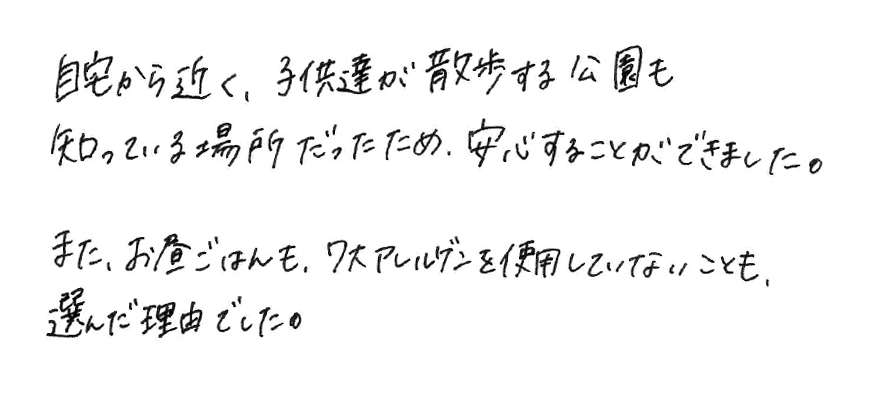 自宅から近く、子供達が散歩する公園も
知っている場所だったため、安心することができました。
また、お昼ごはんも、7大アレルゲンを使用していないことも、
選んだ理由でした。